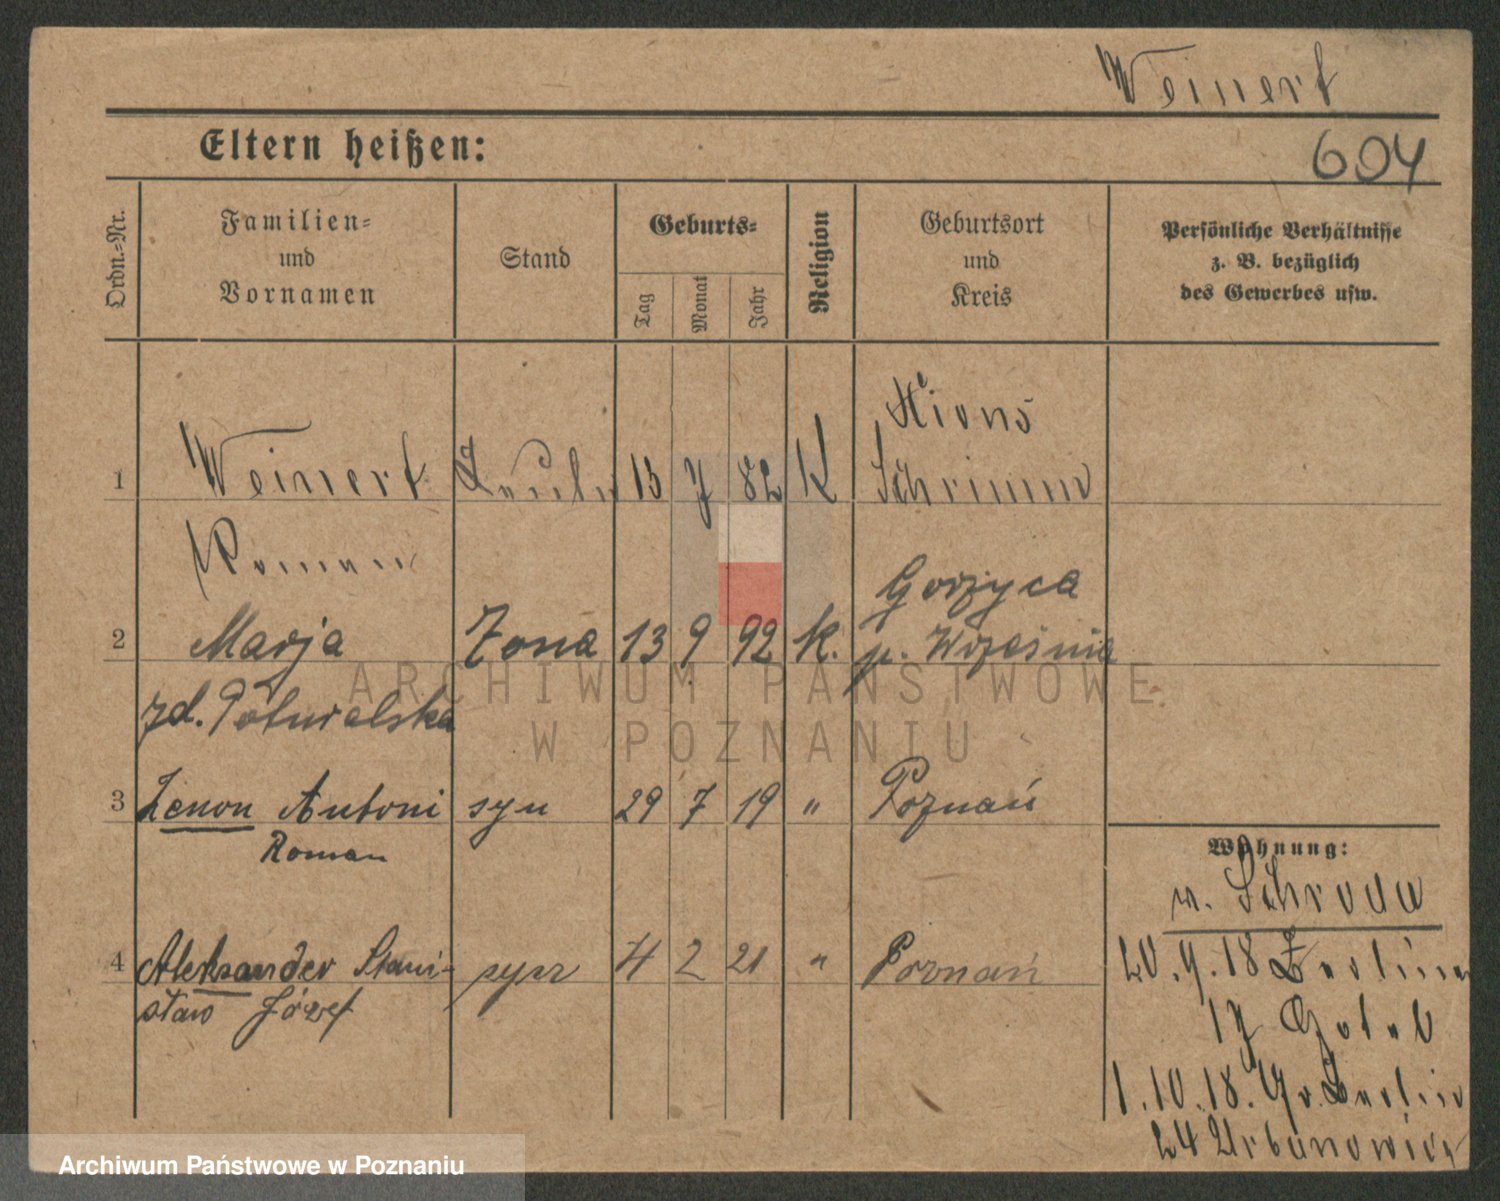 Weinert
Eltern heißen:
604
Ordn.-Nr.
Familien-
und
Vornamen
Stand
Geburts-
Tag
Monat
Jahr
Religion
Geburtsort
und
Kreis
Persönliche Verhältnisse
z. B. bezüglich
des Gewerbes usw.
Xions
1 Weinert 13 7 82 K Schrimm
Roman
Gorzyca
2 Marja Żona 13 9 92 K. p. Września
zd. Poturalska
3 Zenon Antoni syn 29 7 19 " Poznań
Roman
4 Aleksander Stani- syn 4 2 21 " Poznań
sław Józef
Wohnung:
v. Schroda
20.9.18 Berliner
17 Golab
1.10.18. Gr. Berlin
24 Urbanowicz
ARCHIWUM PAŃSTWOWE
W POZNANIU
Archiwum Państwowe w Poznaniu